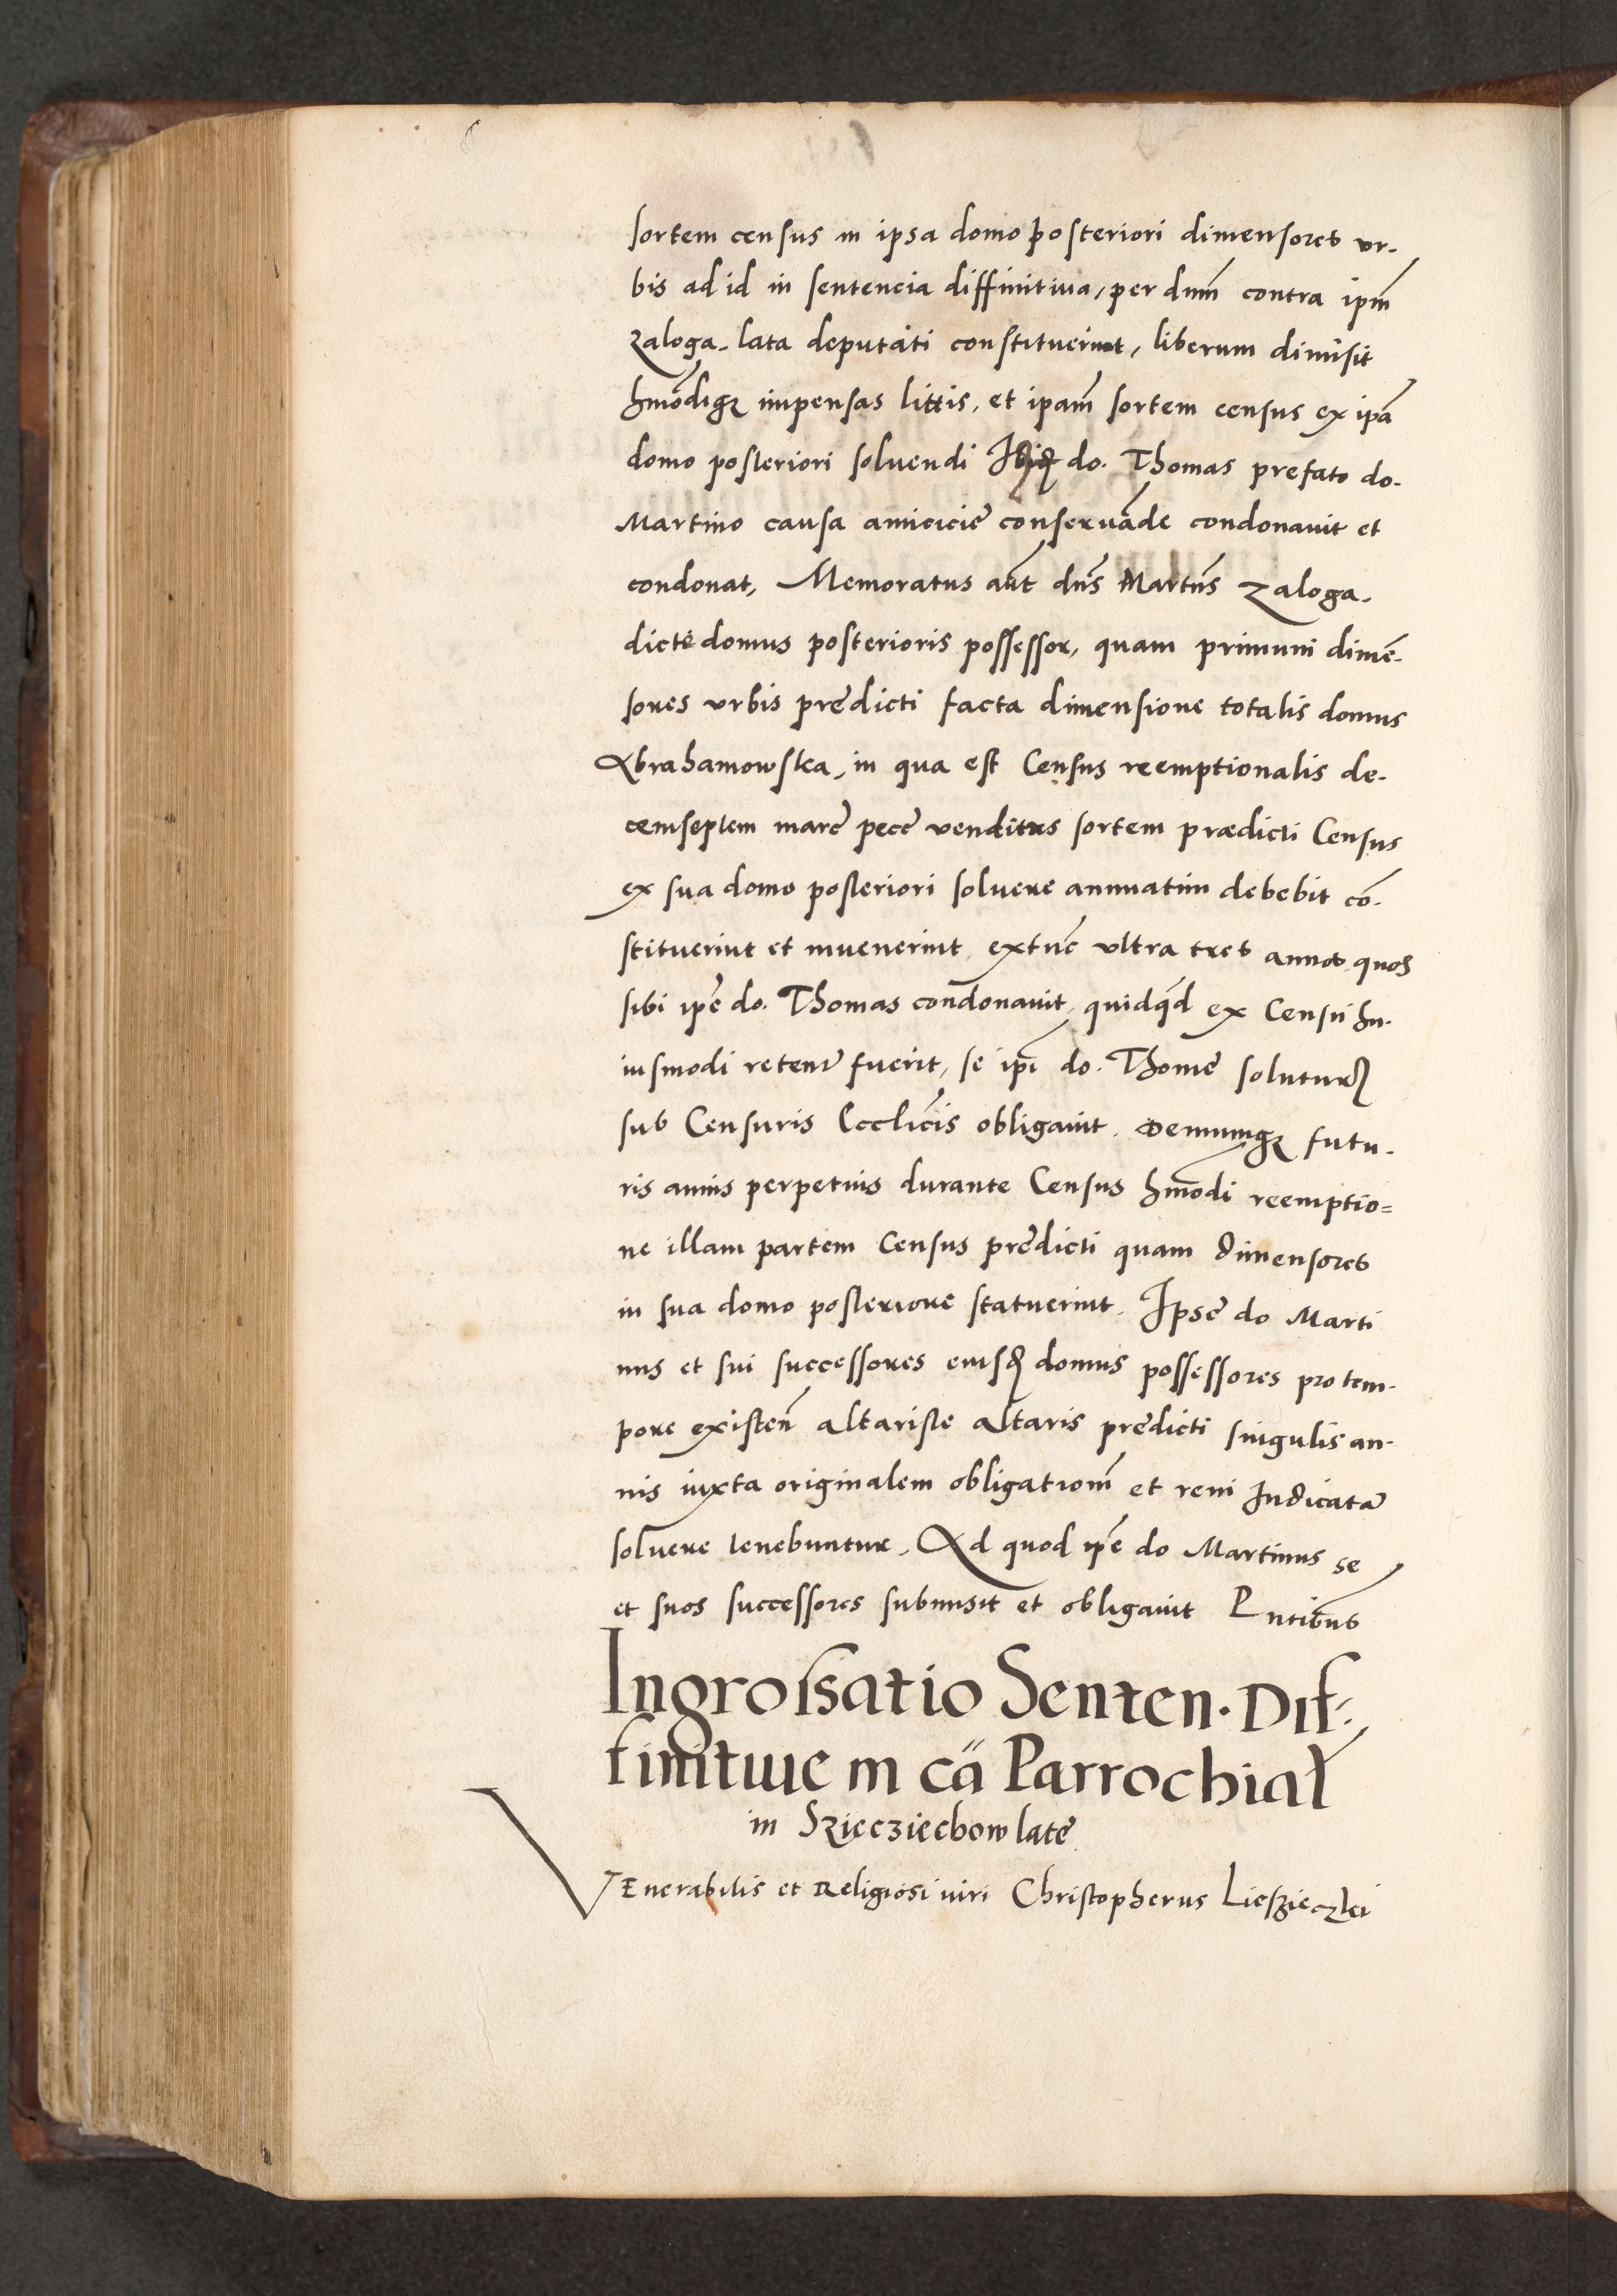 sortem census in ipsa domo posteriori dimensores vr-
bis ad id in sentencia diffinitiua, per dnm̄ contra ipm̄
zaloga. lata deputati constituerint, liberum dimisit
hmōdiqꝫ impensas littis, et ipam̄ sortem census ex ipā
domo posteriori soluendi do. Thomas prefato do.
Martino causa amicicie conseruāde condonauit et
condonat, Memoratus aūt dn̄s Martn̄s Zaloga.
dictę domus posterioris possessor, quam primum dimē-
sores vrbis prędicti facta dimensione totalis domus
Abrahamowska, in qua est Census reemptionalis de-
cemseptem marc̄ pecc̄ venditus sortem prædicti Census
ex sua domo posteriori soluere annuatim debebit cō-
stituerint et inuenerint, extūc vltra tres annos quos
sibi ipē do. Thomas condonauit, quidqd̄ ex Censu hu-
iusmodi retent̄ fuerit, se ipī do. Thomę soluturꝝ
sub Censuris Ecclic̄is obligauit. Demumqꝫ futu-
ris annis perpetuis durante Census hmōdi reemptio=
ne illam partem Census prędicti quam dimensores
in sua domo posteriore statuerint. Ipse do Marti
nus et sui successores eiusꝺ domus possessores pro tem-
pore existeñ altariste altaris prędicti singulis an-
nis iuxta originalem obligationm̄ et rem Iudicatā
soluere tenebuntur. Ad quod ipē do Martinus se
et suos successores submisit et obligauit Pn̄tibus
Ingrossatio Senten. Dif-
finitiuę in cā Parrochial
in Szieciechow latę
VEnerabilis et Religiosi viri Christopherus